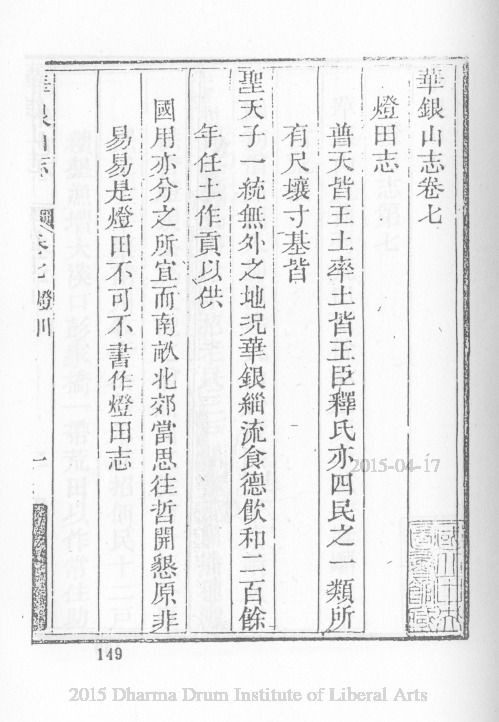 華銀山志卷七
燈田志
普天皆王土率土皆王臣釋氏亦四民之一類所
有尺壤寸基皆
聖天子一統無外之地況華銀緇流食德飲和二百餘
年任土作貢以供
國用亦分之所宜而南畝北郊當思往哲開懇原非
易易是燈田不可不書作燈田志
華銀山志
卷七 燈田
一
2015-04-17
149
2015 Dharma Drum Institute of Liberal Arts